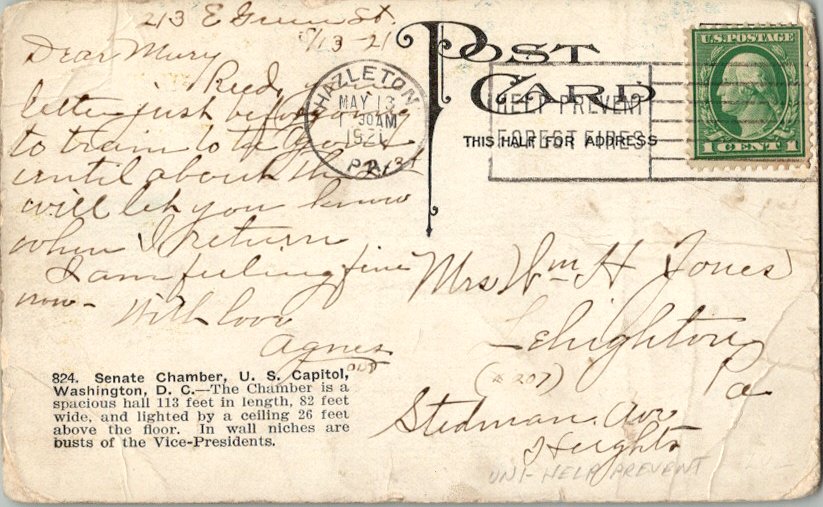 213 E Green St.
5/13-21
Dear Mury
Recd your
letter just before going
to train to be gone
until about the 21st
will let you know
when I return
I am feeling fine
now- With love
Agnes
824. Senate Chamber, U. S. Capitol,
Washington, D. C.—The Chamber is a
spacious hall 113 feet in length, 82 feet
wide, and lighted by a ceiling 26 feet
above the floor. In wall niches are
busts of the Vice-Presidents.
POST
CARD
THIS HALF FOR ADDRESS
HAZLETON
MAY 13
1130AM
1921
PA.
HELP PREVENT
FOREST FIRES
U.S. POSTAGE
1 CENT 1
Mrs Wm H Jones
Lehighton
Pa
(#207)
Stedman Ave
Heights
UNI-HELP PREVENT